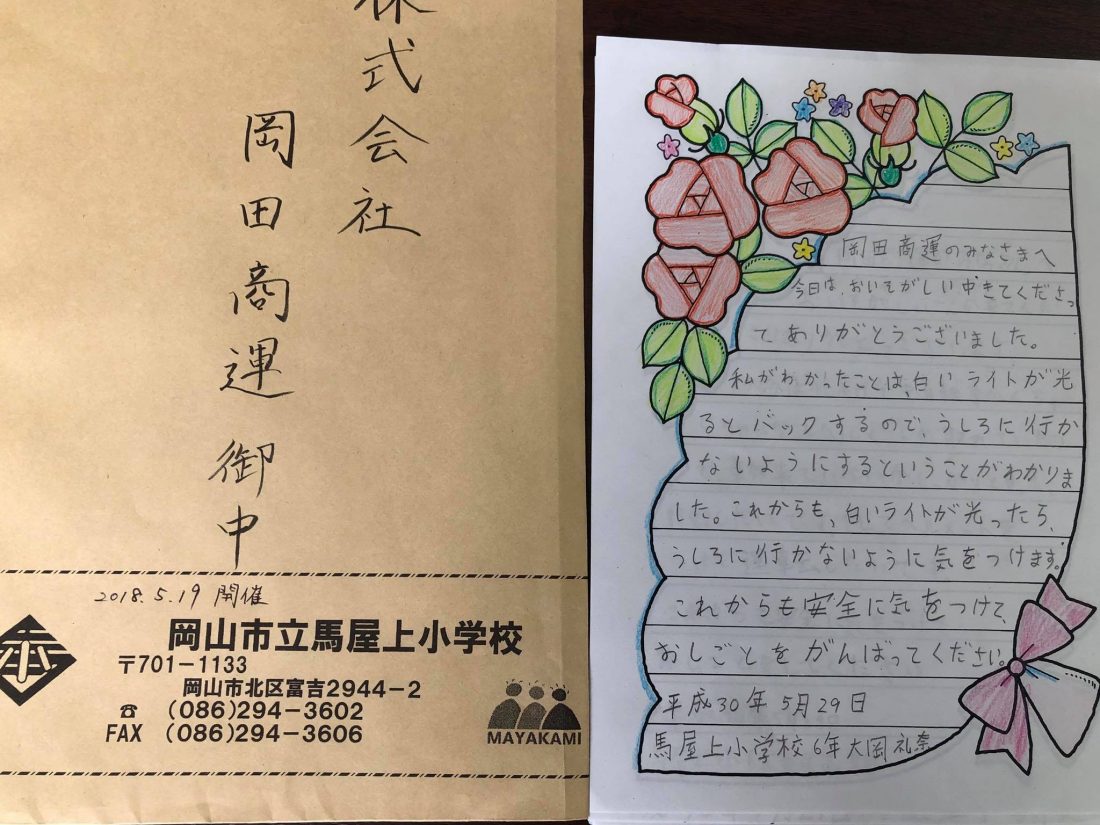 株式会社
岡田商運 御中
2018.5.19 開催
岡山市立馬屋上小学校
〒701-1133
岡山市北区富吉2944-2
☎ (086)294-3602
FAX (086)294-3606
MAYAKAMI
岡田商運のみなさまへ
今日は、おいそがしい中きてくださっ
てありがとうございました。
私がわかったことは、白いライトが光
るとバックするので、うしろに行か
ないようにするということがわかりま
した。これからも、白いライトが光ったら、
うしろに行かないように気をつけます。
これからも安全に気をつけて、
おしごとをがんばってください。
平成30年 5月29日
馬屋上小学校6年大岡礼奈